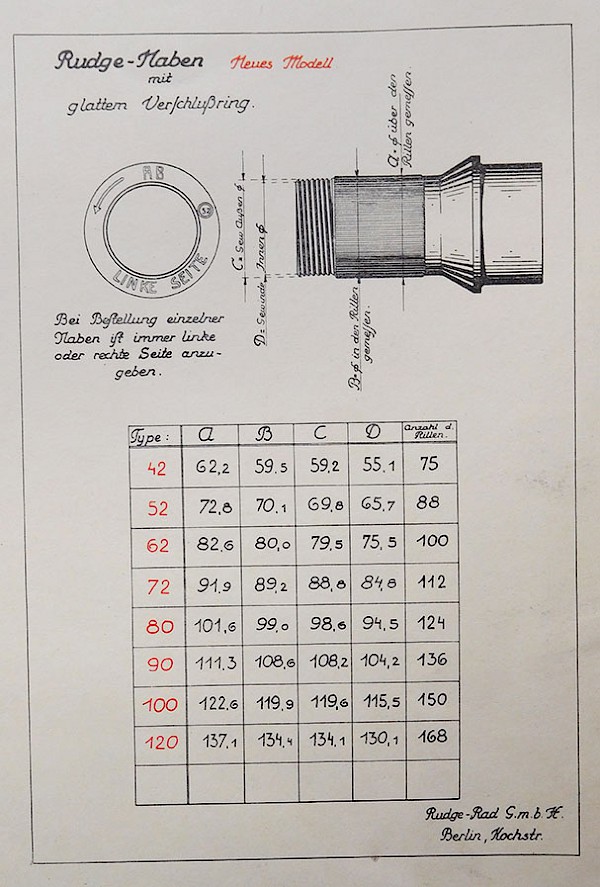 Rudge-Naben Neues Modell
mit
glattem Verschlußring.
AB
52
LINKE SEITE
C = Gew. Außen ϕ
D = Gewinde Innen ϕ
A = ϕ über den
Rillen gemessen.
B = ϕ in den Rillen
gemessen.
Bei Bestellung einzelner
Naben ist immer linke
oder rechte Seite anzu-
geben.
Type: A B C D Anzahl d. Rillen.
42 62,2 59.5 59,2 55.1 75
52 72,8 70.1 69,8 65,7 88
62 82.6 80,0 79,5 75,5 100
72 91,9 89,2 88,8 84,8 112
80 101,6 99,0 98,6 94,5 124
90 111.3 108,6 108,2 104,2 136
100 122,6 119,9 119,6 115,5 150
120 137,1 134,4 134,1 130,1 168
Rudge-Rad G.m.b.H.
Berlin, Kochstr.